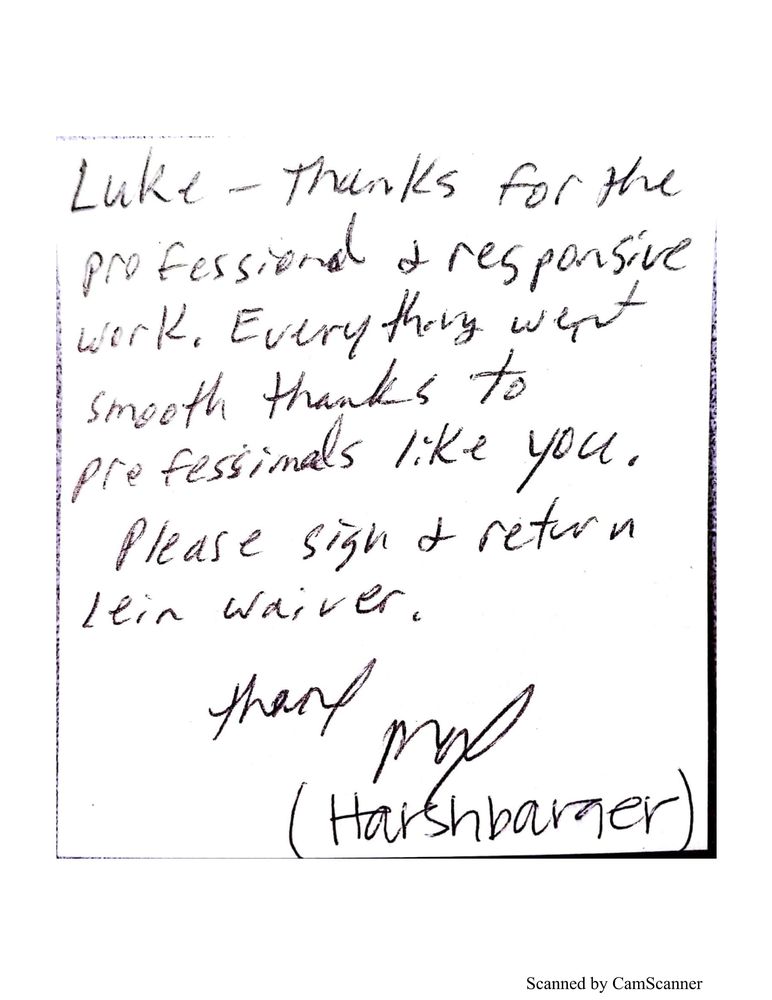 Luke - Thanks for the
professional & responsive
work. Everything went
smooth thanks to
professionals like you.
Please sign & return
lein waiver.
thank
(Harshbarger)
Scanned by CamScanner